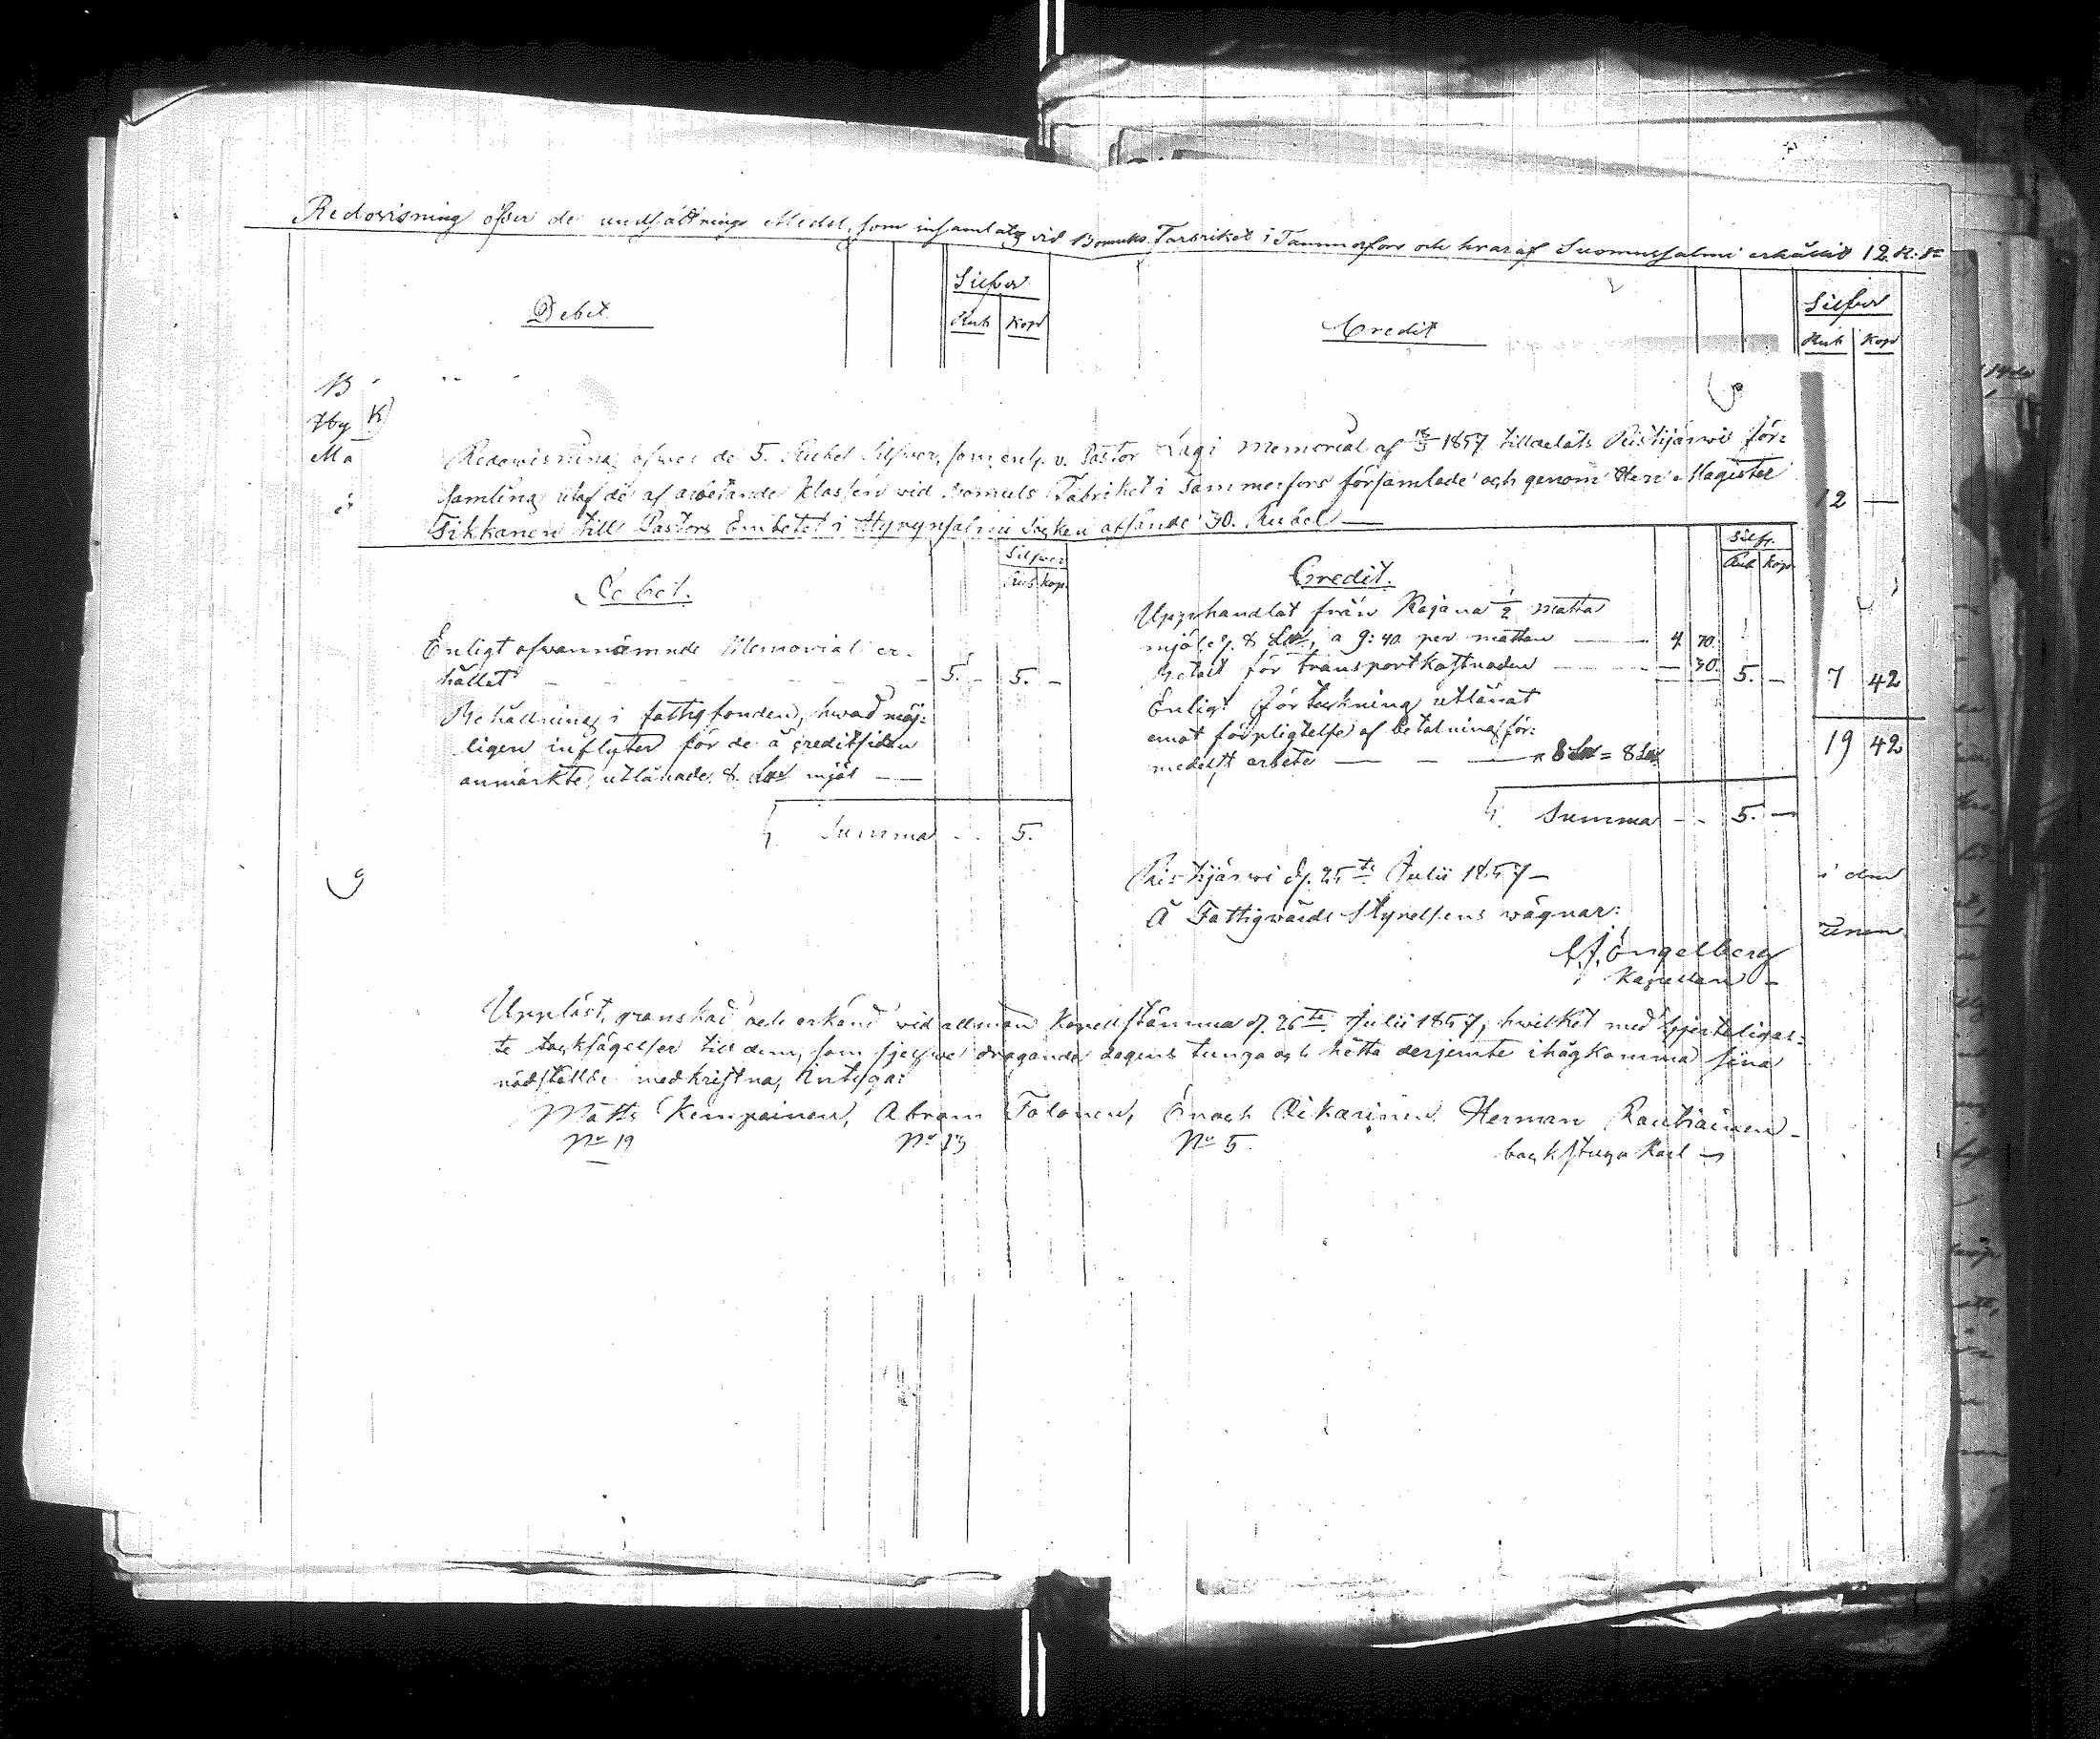 Redovisning öfver de undsättnings Medel, som insamlats vid Bomuls Fabriket i Tammerfors och hvaraf Suomussalmi erhållit 12 R. Sr
Debet.
Silfver
Rub Kop
Credit
Silfver
Rub Kop
Redovisning öfver de 5. Rubel Silfver, som enl. v. Pastor Lagi Memorial af 1857 tilldelats Ristijärvi för=
samling utaf de af arbetande klassen vid Bomuls Fabriket i Tammerfors församlade och genom Herr Magister
Tikkanen till Pastors Embetet i Hyrynsalmi Socken afsände 30. Rubel —
12 —
Debet.
Silfver
Rub Kop.
Credit.
Silfr.
Rub Kop
Upphandlat från Kajana ½ matta
Enligt ofvannämnde Memorial er-
mjöl, 8 , a 9:40 per mattan — 4 70.
hållet — 5. — 5. —
Betalt för transportkostnaden — — 30. 5. —
7 42
Behållning i fattigfonden, hvad möj=
Enligt förteckning utlånat
ligen inflyter för de å creditsidan
emot förpligtelse af betalning för:
anmärkte, utlånade 8. mjöl —
medelst arbete — — 8 = 8
19 42
Summa - - 5.
Summa - - 5. —
Ristijärvi d. 25te Julii 1857 —
Å Fattigvårds Styrelsens vägnar:
Engelberg
Kapellan —
Uppläst, granskad och erkänd vid allmän Kapellstämma d. 26te Julii 1857, hvilket med hjerteligas=
te tacksägelser till dem, som sjelfve dragande dagens tunga och hetta derjemte ihågkomma sina
nödställde medkristna, intygar
Matts Kemppainen, Abram Tolonen, Enoch Oikarinen. Herman Rautiainen —
No 19 No 13 No 5. backstuga Karl —